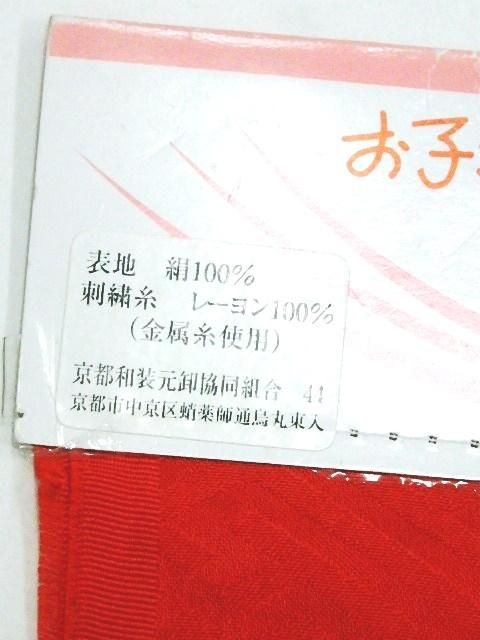 お子
表地 絹100%
刺繍糸 レーヨン100%
(金属糸使用)
京都和装元卸協同組合 41
京都市中京区蛸薬師通烏丸東入